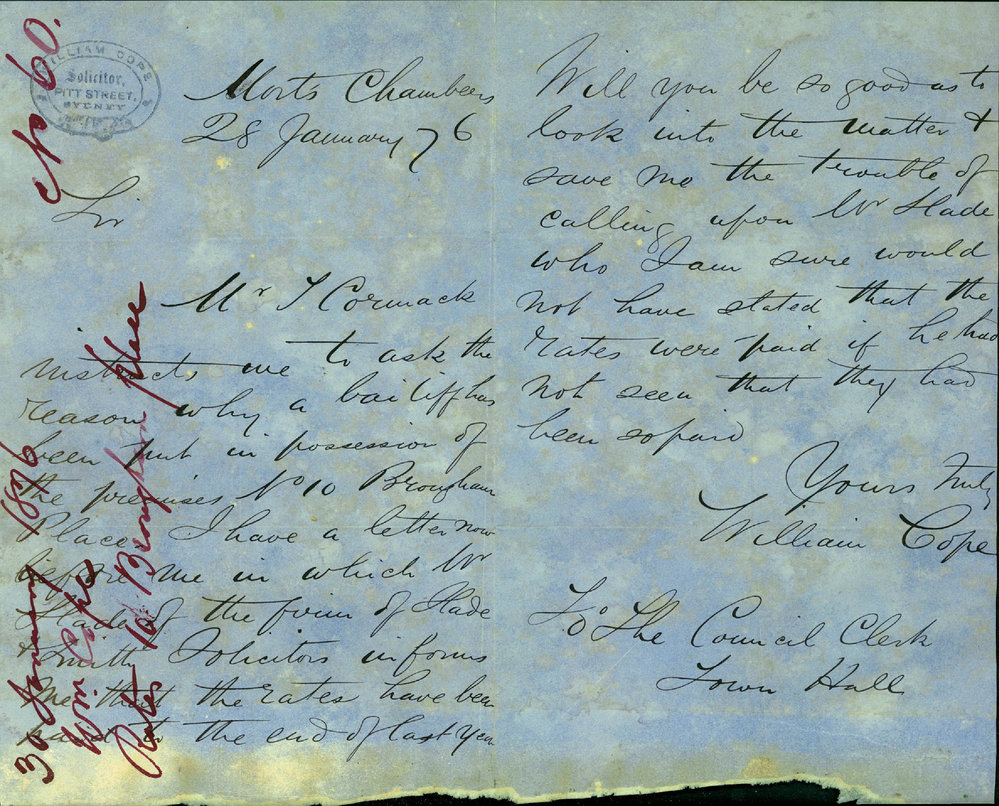 No 60.
WILLIAM COPE
Solicitor,
PITT STREET,
SYDNEY
Morts Chambers
28 January 76
Sir
Mr T Cormack
instructs me to ask the
reason why a bailiff has
been put in possession of
the premises No 10 Brougham
Place I have a letter now
before me in which Mr
Slade of the firm of Slade
& Smith Solicitors informs
me that the rates have been
paid to the end of last year
Will you be so good as to
look into the matter &
save me the trouble of
calling upon Mr Slade
who I am sure would
not have stated that the
rates were paid if he had
not seen that they had
been so paid
Yours truly
William Cope
To The Council Clerk
Town Hall
30 January 1876
Wm Cope
Rates 10 Brougham Place